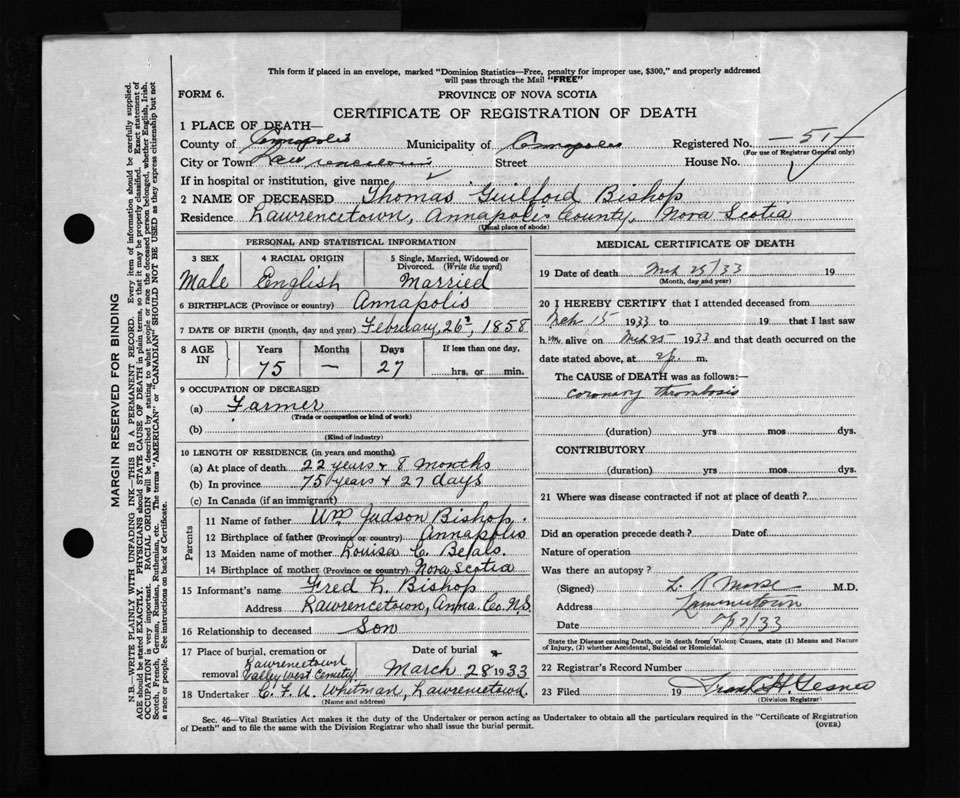 This form if placed in an envelope, marked "Dominion Statistics—Free, penalty for improper use, $300," and properly addressed
will pass through the Mail "FREE"
FORM 6.
PROVINCE OF NOVA SCOTIA
CERTIFICATE OF REGISTRATION OF DEATH
1 PLACE OF DEATH—
County of Annapolis Municipality of Annapolis Registered No. 51
(For use of Registrar General only)
City or Town Lawrencetown Street House No.
If in hospital or institution, give name
2 NAME OF DECEASED Thomas Guilford Bishop
Residence Lawrencetown, Annapolis County, Nova Scotia
(Usual place of abode)
PERSONAL AND STATISTICAL INFORMATION
3 SEX 4 RACIAL ORIGIN 5 Single, Married, Widowed or Divorced. (Write the word)
Male English Married
6 BIRTHPLACE (Province or country) Annapolis
7 DATE OF BIRTH (month, day and year) February, 26, 1858
8 AGE IN Years Months Days If less than one day,
75 — 27 hrs. or min.
9 OCCUPATION OF DECEASED
(a) Farmer
(Trade or occupation or kind of work)
(b)
(Kind of industry)
10 LENGTH OF RESIDENCE (in years and months)
(a) At place of death 22 years + 8 months
(b) In province 75 years + 27 days
(c) In Canada (if an immigrant)
Parents
11 Name of father Wm Judson Bishop.
12 Birthplace of father (Province or country) Annapolis
13 Maiden name of mother Louisa C. Beals.
14 Birthplace of mother (Province or country) Nova Scotia
15 Informant's name Fred L. Bishop
Address Lawrencetown, Anna. Co. N.S.
16 Relationship to deceased Son
17 Place of burial, cremation or removal Lawrencetown Valley West Cemetery Date of burial March 28 1933
18 Undertaker Whitman, Lawrencetown.
(Name and address)
MEDICAL CERTIFICATE OF DEATH
19 Date of death Mch 25/33 19
(Month, day and year)
20 I HEREBY CERTIFY that I attended deceased from
Mch 15 1933 to 19 that I last saw
h im alive on Mch 25 1933 and that death occurred on the
date stated above, at 2 p. m.
The CAUSE of DEATH was as follows:—
coronary thrombosis
(duration) yrs mos dys.
CONTRIBUTORY
(duration) yrs mos dys.
21 Where was disease contracted if not at place of death?
Did an operation precede death? Date of
Nature of operation
Was there an autopsy?
(Signed) L. R Morse M.D.
Address Lawrencetown
Date 2/33
State the Disease causing Death, or in death from Violent Causes, state (1) Means and Nature
of Injury, (2) whether Accidental, Suicidal or Homicidal.
22 Registrar's Record Number
23 Filed 19 Frank H. Gesner
(Division Registrar)
Sec. 46—Vital Statistics Act makes it the duty of the Undertaker or person acting as Undertaker to obtain all the particulars required in the "Certificate of Registration
of Death" and to file the same with the Division Registrar who shall issue the burial permit.
(OVER)
MARGIN RESERVED FOR BINDING
N.B.—WRITE PLAINLY WITH UNFADING INK—THIS IS A PERMANENT RECORD. Every item of information should be carefully supplied.
AGE should be stated EXACTLY. PHYSICIANS should STATE CAUSE OF DEATH in plain terms, so that it may be properly classified. Exact statement of
OCCUPATION is very important. RACIAL ORIGIN will be described by stating to what people or race the deceased person belonged, whether English, Irish,
Scotch, French, German, Russian, Ruthenian, etc. The terms "AMERICAN" or "CANADIAN" SHOULD NOT BE USED as they express citizenship but not
a race or people. See instructions on back of Certificate.